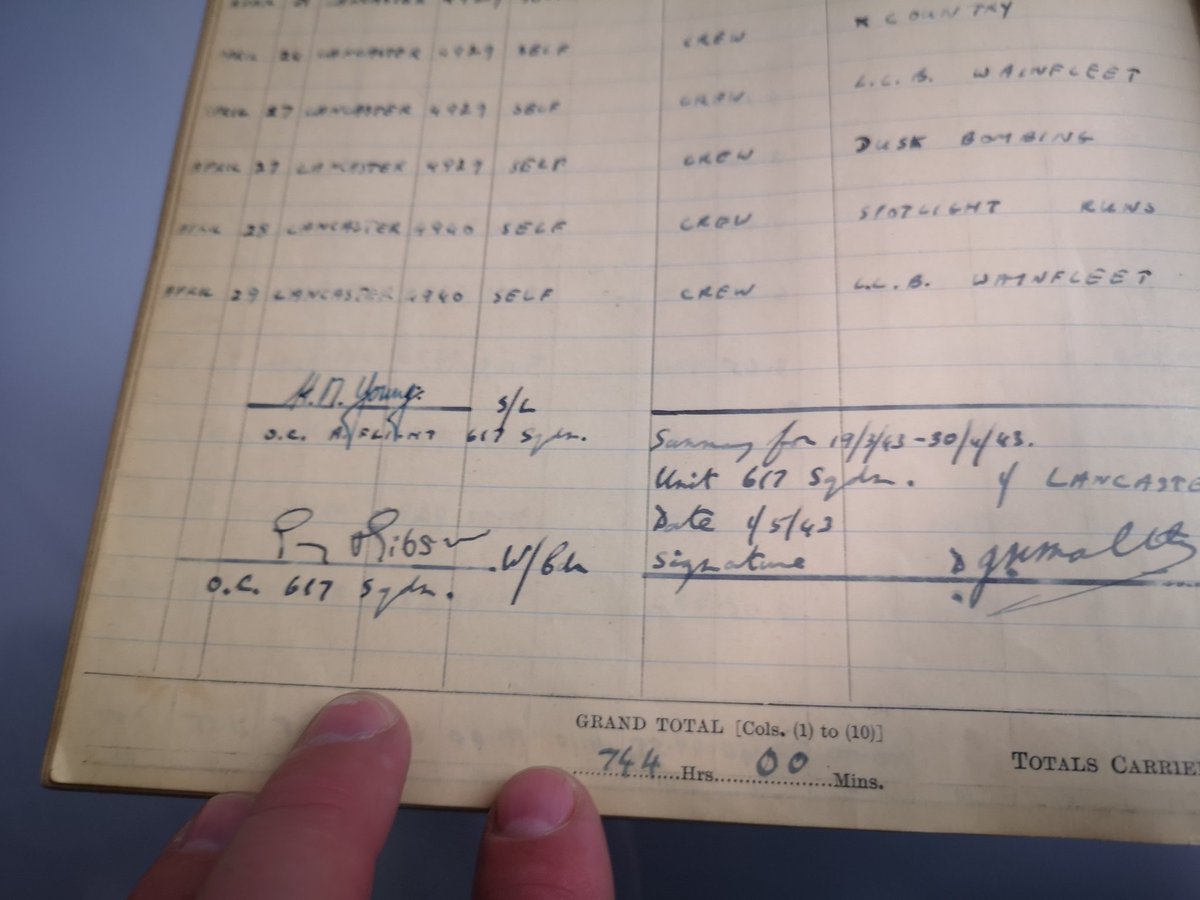 X COUNTRY
APRIL 26 LANCASTER 4929 SELF CREW
L.L.B. WAINFLEET
APRIL 27 LANCASTER 4929 SELF CREW
DUSK BOMBING
APRIL 27 LANCASTER 4929 SELF CREW
SPOTLIGHT RUNS
APRIL 28 LANCASTER 4940 SELF CREW
L.L.B. WAINFLEET
APRIL 29 LANCASTER 4940 SELF CREW
H.M. Young. S/L
O.C. A. FLIGHT 617 Sqdn.
Summary for 19/3/43-30/4/43.
Unit 617 Sqdn. LANCASTE
Date 1/5/43
Signature
Gibson W/Cdr
O.C. 617 Sqdn.
GRAND TOTAL [Cols. (1) to (10)]
744 Hrs. 00 Mins.
TOTALS CARRIE